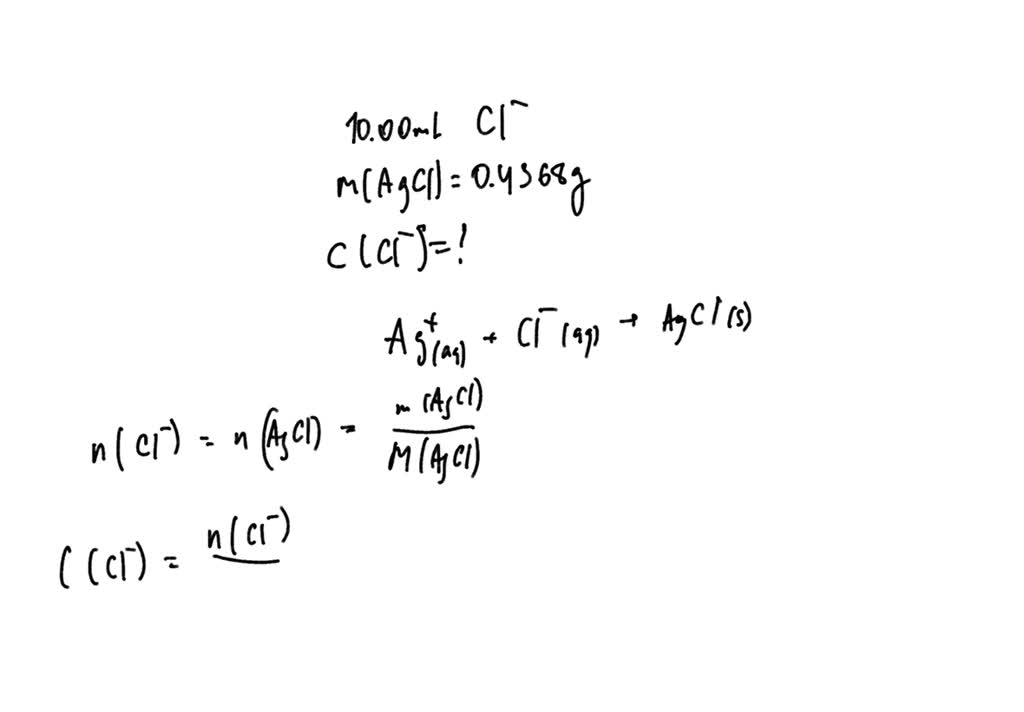 10.00ml Cl⁻
m(AgCl) = 0.4368g
C(Cl⁻) = ?
Ag⁺(aq) + Cl⁻(aq) → AgCl(s)
n(Cl⁻) = n(AgCl) = m(AgCl) / M(AgCl)
C(Cl⁻) = n(Cl⁻) /